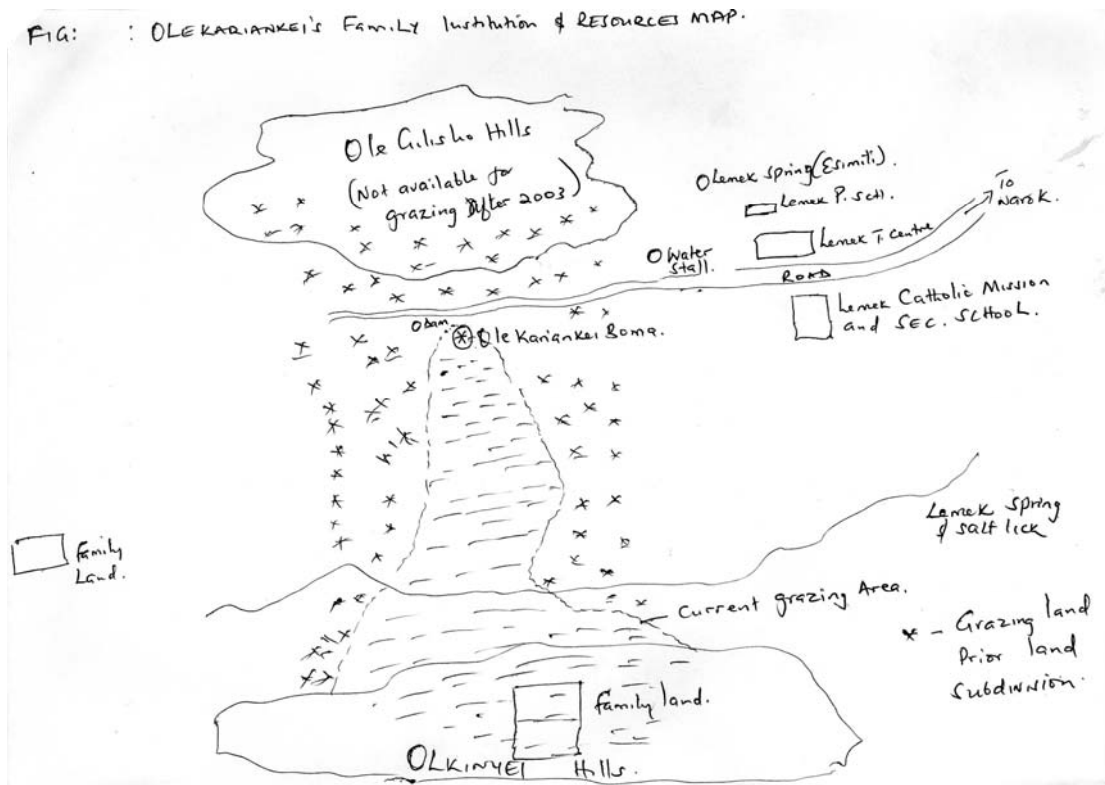 FIG: : OLEKARIANKEI'S Family Institution & RESOURCES MAP.
Ole Gilisho Hills
(Not available for
grazing After 2003)
Lemek spring (Esimiti).
Lemek P. Sch.
To
Narok.
Lemek T. Centre
Water
Stall.
ROAD
Lemek Catholic Mission
and SEC. SCHOOL.
Dam
Ole Kariankei Boma.
Lemek spring
& salt lick
Family
Land.
Current grazing Area.
* - Grazing land
Prior land
Subdivision.
family land.
OLKINYEI Hills.